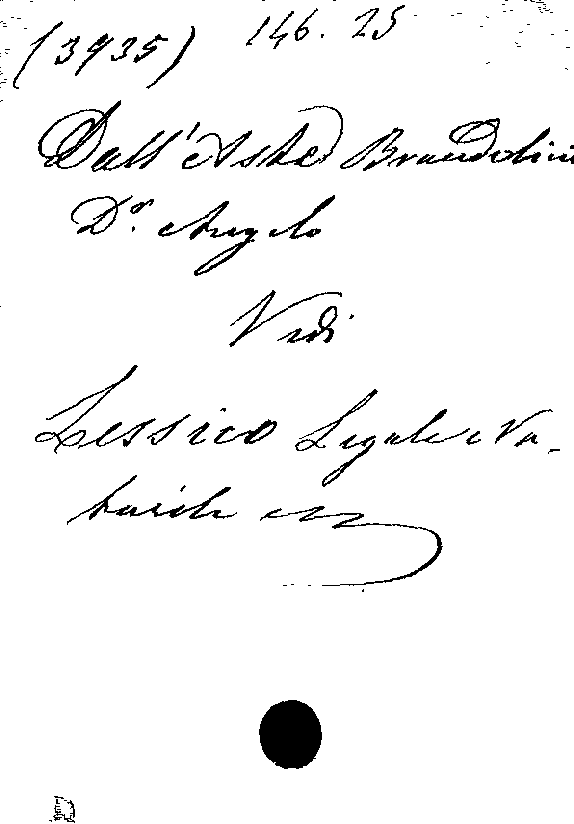 (3935) 146. 25
Dall'Aste Brandolini
Dr. Angelo
Vedi
Lessico Legale e No-
tarile